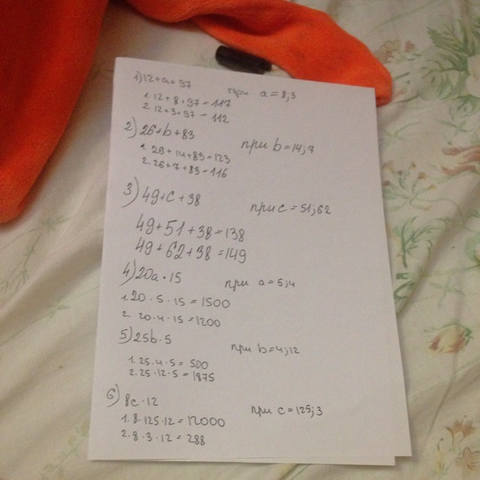 1) 12+a+97 при a=8,3
1. 12+8+97=117
2. 12+3+97=112
2) 26+b+83 при b=14,7
1. 26+14+83=123
2. 26+7+83=116
3) 49+c+38 при c=51,62
49+51+38=138
49+62+38=149
4) 20a·15 при a=5,4
1. 20·5·15=1500
2. 20·4·15=1200
5) 25b·5 при b=4,12
1. 25·4·5=500
2. 25·12·5=1875
6) 8c·12 при c=125,3
1. 8·125·12=12000
2. 8·3·12=288